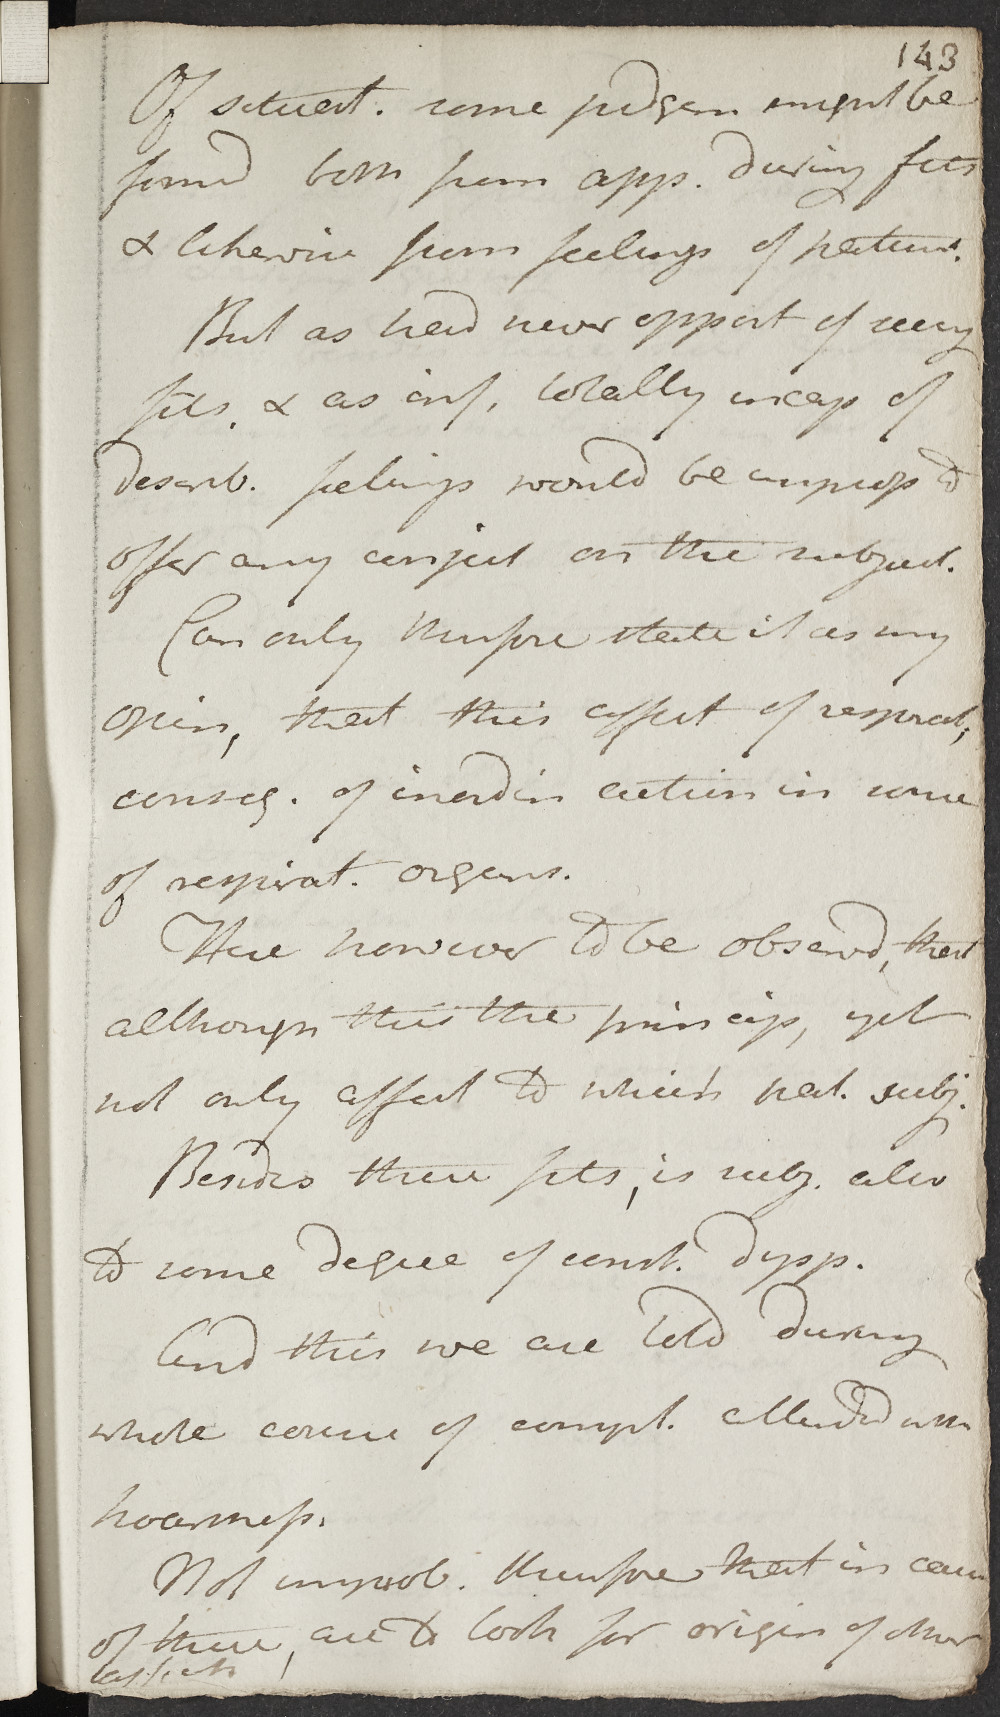 143
Of situat. some judgem might be
formd both from app. during fits
& likewise from feelings of patient.
But as have never opport of seeing
fits, & as inf, totally incap of
describ. feelings would be improp to
offer any conject on the subject.
Can only therefore state it as my
opin, that this affect of respirat,
conseq. of inordin action in some
of respirat. organs.
Here however to be observd, that
although this the princip, yet
not only affect to which pat. subj.
Besides these fits, is subj. also
to some degree of const. dysp.
And this we are told during
whole course of compl. attended with
hoarsness.
Not improb. therefore that in cause
of these, are to look for origin of other
affects